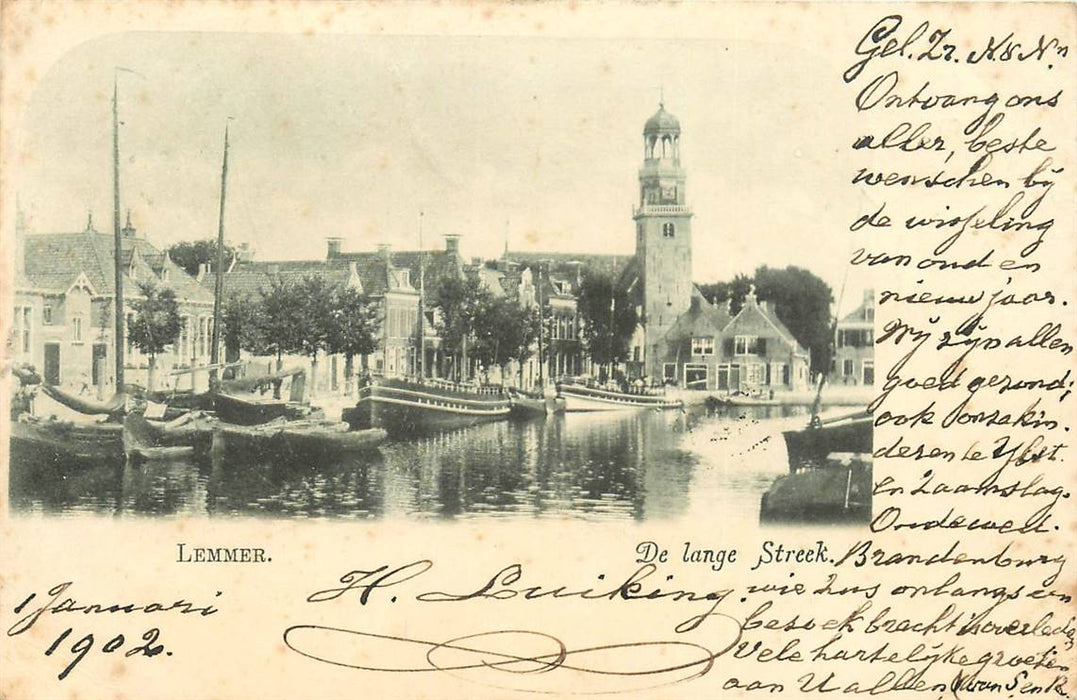 Gel. Zr. N. & N.n
Ontvang ons
aller, beste
wenschen bij
de wisseling
van oud en
nieuw jaar.
Wij zijn allen
goed gezond;
ook ons akin.
deren te Ylst.
en Laamslag.
Oudeweet.
LEMMER.
De lange Streek.
Brandenburg
wie Zus onlangs een
bezoek bracht is overleden
Vele hartelijke groeten
aan U allen (van S en R.
1 Januari
1902.
H. Luiking.